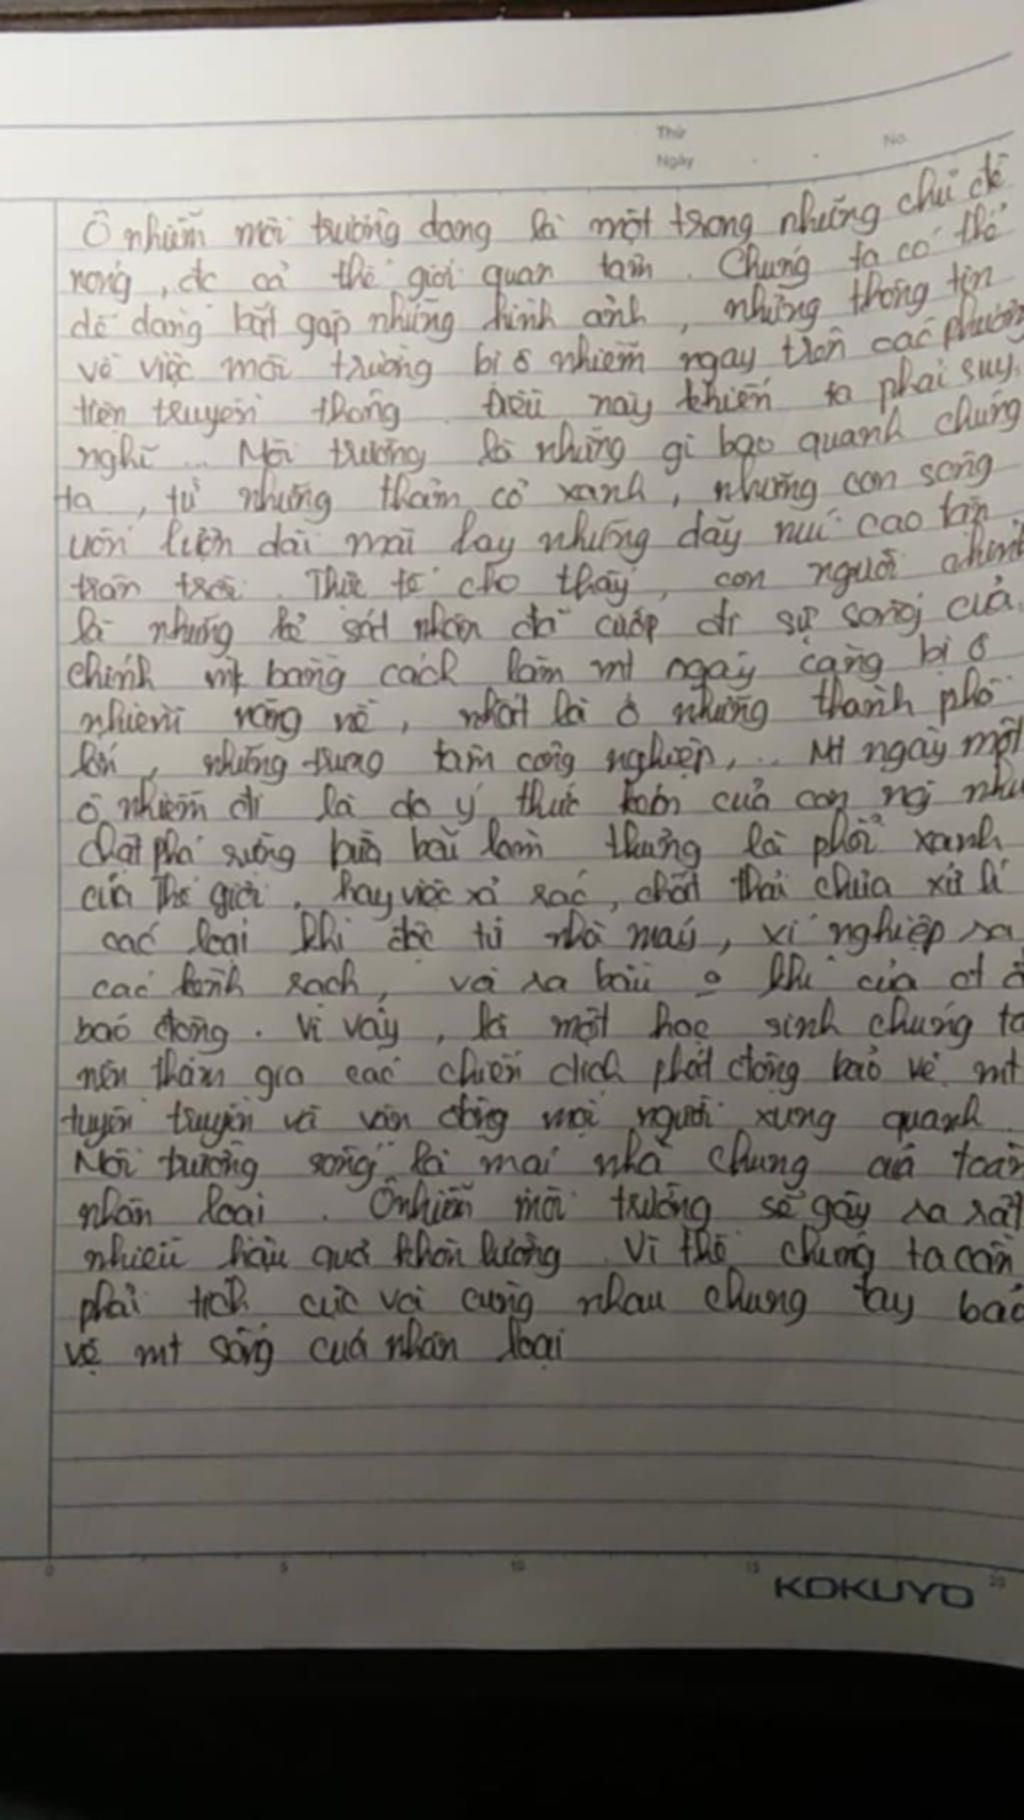 Thứ
No.
Ngày
Ô nhiễm môi trường đang là một trong những chủ đề
nóng, đc cả thế giới quan tâm. Chúng ta có thể
dễ dàng bắt gặp những hình ảnh, những thông tin
về việc môi trường bị ô nhiễm ngay trên các phương
tiện truyền thông. Điều này khiến ta phải suy
nghĩ... Môi trường là những gì bao quanh chúng
ta, từ những thảm cỏ xanh, những con sông
uốn lượn dài mãi hay những dãy núi cao
. Thực tế cho thấy, con người chính
là những kẻ sát nhân đã cướp đi sự sống của
chính mk bằng cách làm mt ngày càng bị ô
nhiễm nặng nề, nhất là ở những thành phố
lớn, những trung tâm công nghiệp,... Mt ngày một
ô nhiễm đi là do ý thức kém của con ng như
chặt phá rừng bừa bãi làm thủng lá phổi xanh
của Thế giới, hay việc xả rác, chất thải chưa xử lí
các loại khí độc từ nhà máy, xí nghiệp ra
các kênh rạch, và ra bầu o khí của
báo động. Vì vậy, là một học sinh chúng ta
nên tham gia các chiến dịch phát động bảo vệ mt
tuyên truyền và vận động mọi người xung quanh.
Môi trường sống là mái nhà chung của toàn
nhân loại. Ô nhiễm môi trường sẽ gây ra rất
nhiều hậu quả khôn lường. Vì thế chúng ta cần
phải tích cực và cùng nhau chung tay bảo
vệ mt sống của nhân loại
0 5 10 15 20
KOKUYO